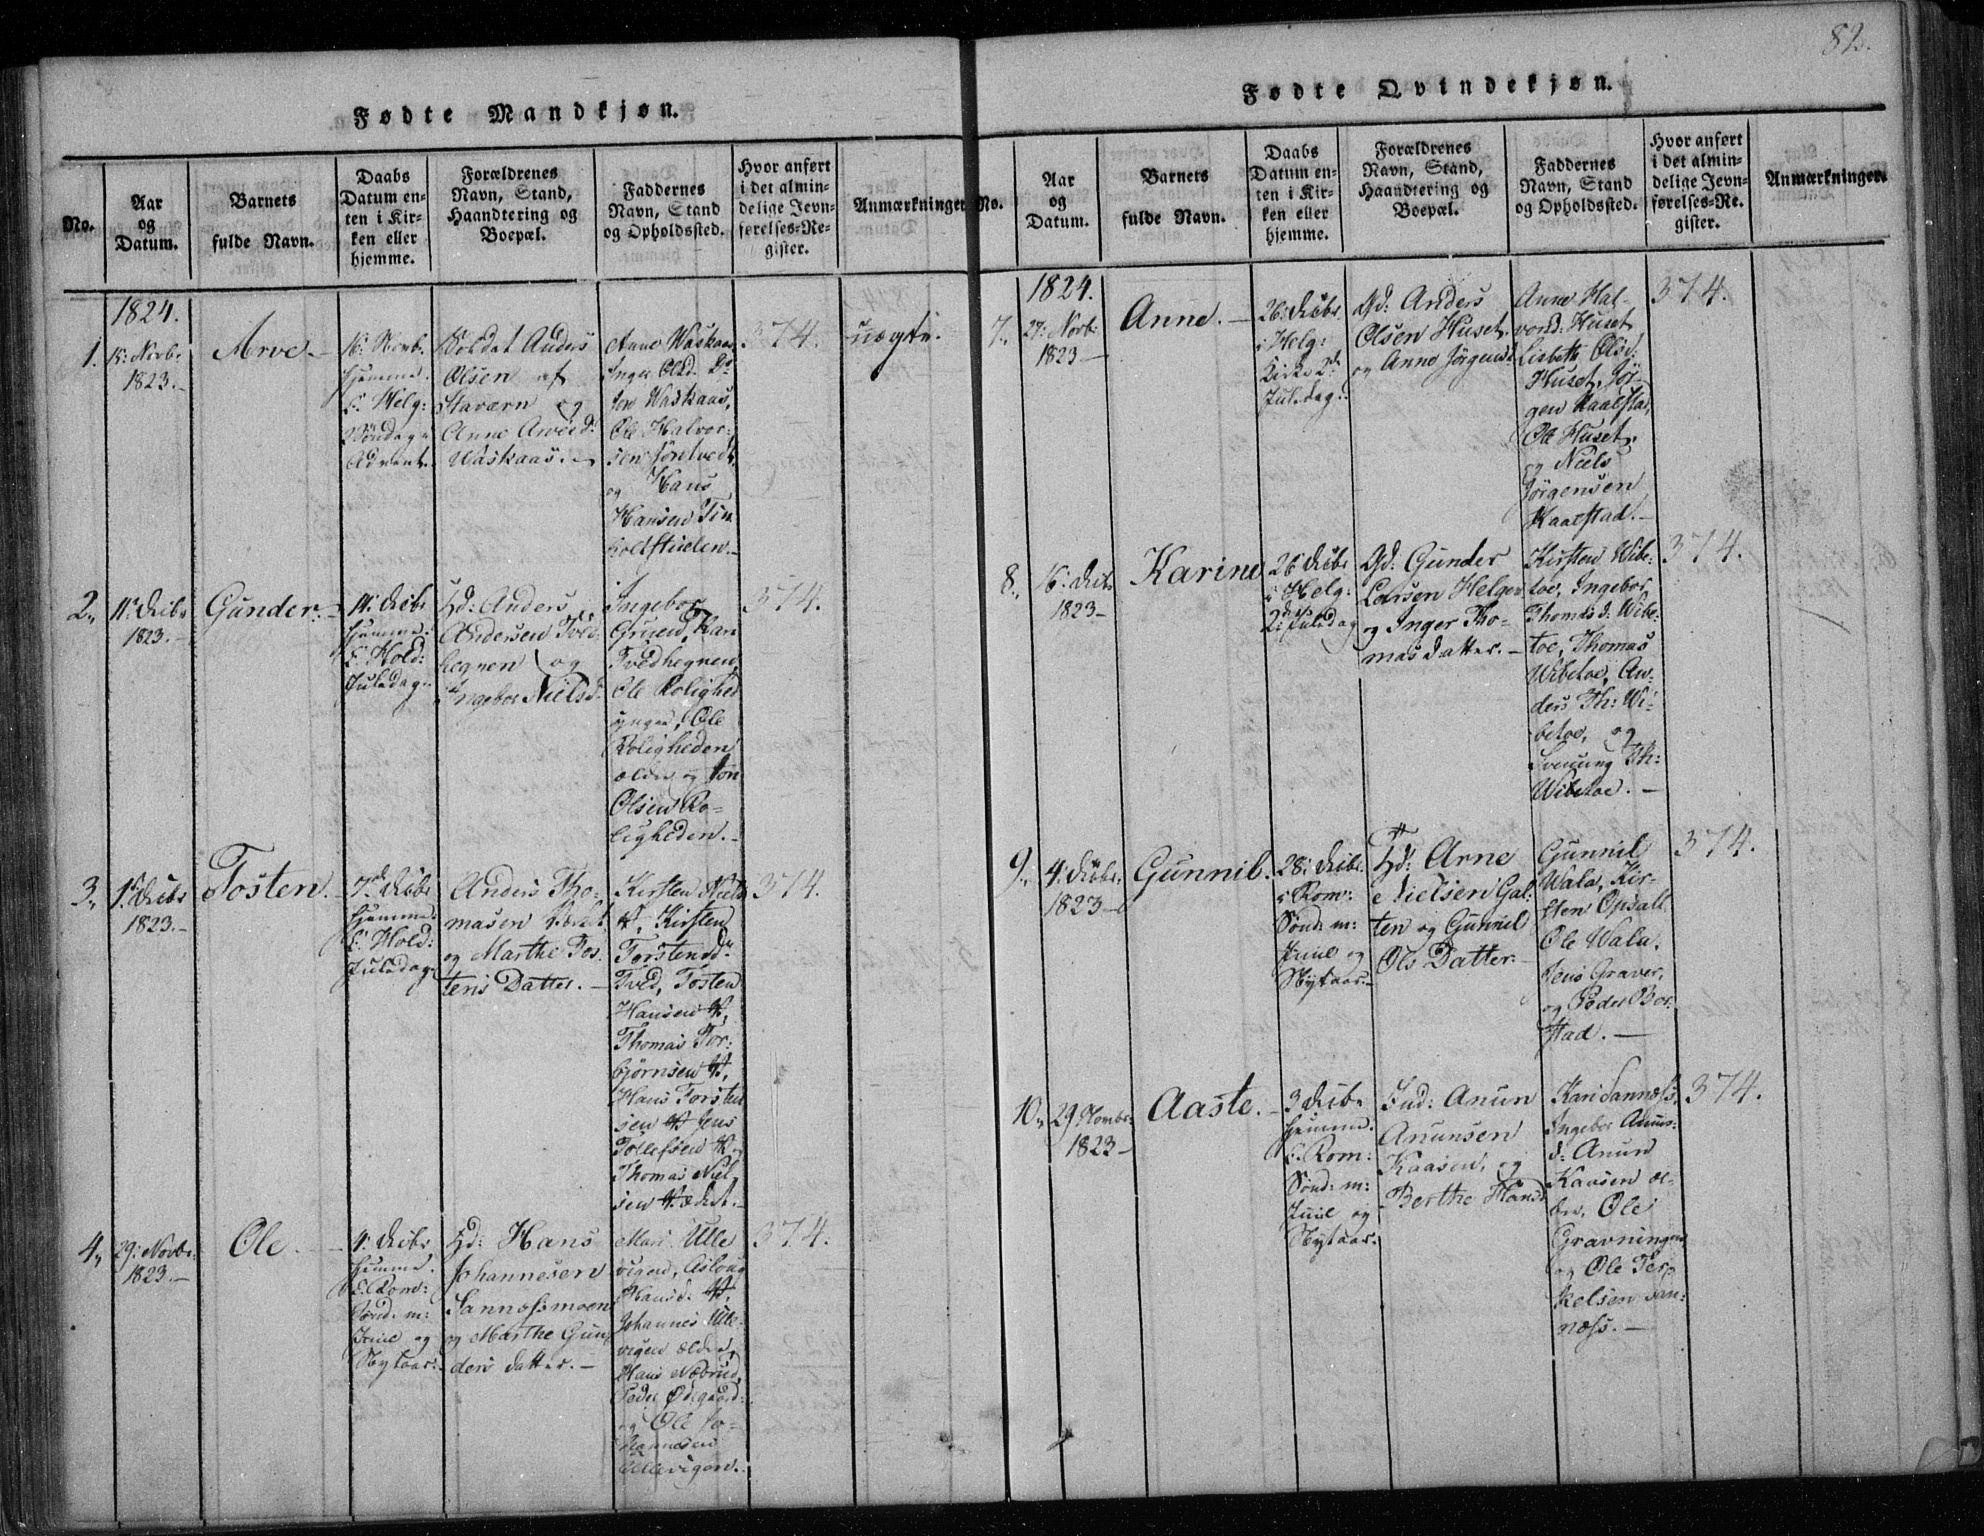 Fødte Mandkjøn.
No.
Aar
og
Datum.
Barnets
fulde Navn.
Daabs
Datum en-
ten i Kir-
ken eller
hjemme.
Forældrenes
Navn, Stand,
Haandtering og
Boepæl.
Faddernes
Navn, Stand
og Opholdssted.
Hvor anført
i det almin-
delige Jevn-
førelses-Re-
gister.
Anmærkninger
1824.
1.
15: Novbr
1823.
Arve
16: Novb.
hjemme.
C. Helg:
Søndag
Advent.
Soldat Anders
Olsen af
Staværn og
Anne Arved:
Waskaas.
Anne Waskaas
Inger Olsd:
Waskaas,
Ole Halvor:
sen
og Hans
Hansen
374.
2.
11: Decbr
1823.
Gunder.
14: Decbr
hjemme.
C. Hold:
Juledag.
Hd: Anders
Andersen Tved:
hegnen og
Ingebor Nielsd:
Ingebor
Gruend, Kari
Tvedhegnen,
Ole Rolighed
ynger, Ole
Roligheden
ælder og Jon
Olsen Ro-
ligheden.
374.
3.
1: Decbr
1823.
Tosten.
7de Decbr
hjemme.
C. Hold:
Juledag.
Anders Tho-
masen
og Marthe Tos-
tens Datter.
Kirsten
Kirsten
Torstensd:
Tved, Tosten
Hansen
Thomas Tor:
bjørnsen
Hans Torsten
sen Jens
Tollefsen
Thomas Niel
sen
374.
4.
29: Novbr.
1823.
Ole.
4: Decbr
hjemme.
C. Rom:
Sønd. m:
Juul og
Nytaar.
Hd: Hans
Johannesen
Sannæssmoen
og Marthe Gun
ders Datter.
Mari Ulle
vigen, Asloug
Hansd:
Johannes Ulle-
vigen ælder,
Hans Næbrud,
Peder Ødegaard
og Ole Jo-
hannesen
Ullevigen.
374.
82.
Fødte Qvindekjøn.
No.
Aar
og
Datum.
Barnets
fulde Navn.
Daabs
Datum en-
ten i Kir-
ken eller
hjemme.
Forældrenes
Navn, Stand,
Haandtering og
Boepæl.
Faddernes
Navn, Stand
og Opholdssted.
Hvor anført
i det almin-
delige Jevn-
førelses-Re-
gister.
Anmærkninger.
1824.
7.
27: Novb:
1823
Anne.
26: Decbr.
i Helg:
Kirke 2d:
Juledag.
Gd: Anders
Olsen Huset
og Anne Jørgensd:
Anne Hal-
vorsd: Huset,
Lisbeth Olsd:
Huset, Jør-
gen Kaalstad,
Ole Huset,
og Niels
Jørgensen
Kaalstad.
374.
8.
16: Decbr
1823
Karine
26 Decbr
i Helg:
2: Juledag
Gd: Gunder
Larsen Helgen
og Inger Tho-
mas datter.
Kirsten Wibe-
toe, Ingebor
Thomasd: Wibe-
toe, Thomas
Wibetoe, An-
ders Th: Wi-
betoe, og
Svenung Th:
Wibetoe.
374.
9.
4: Decbr.
1823
Gunnil.
28: Decbr.
i Rom:
Sønd: m:
Juul og
Nytaar.
Hd: Arne
Nielsen Gal:
ten og Gunnil
Ols Datter.
Gunnil
Wala, Kir-
sten Opsall
Ole Wala,
Jens Graver,
og Peder Bor-
stad.
374.
10.
29 Novbr.
1823
Aaste.
3 Decbr
hjemme.
C. Rom:
Sønd: m:
Juul og
Nytaar.
Ind: Anun
Anunsen
Kaasen, og
Berthe Hansd:
Kari Sannæss,
Ingebor Anuns-
d: Anun
Kaasen æl-
der, Ole
Gravningen,
og Ole Ter-
kelsen San-
næss.
374.